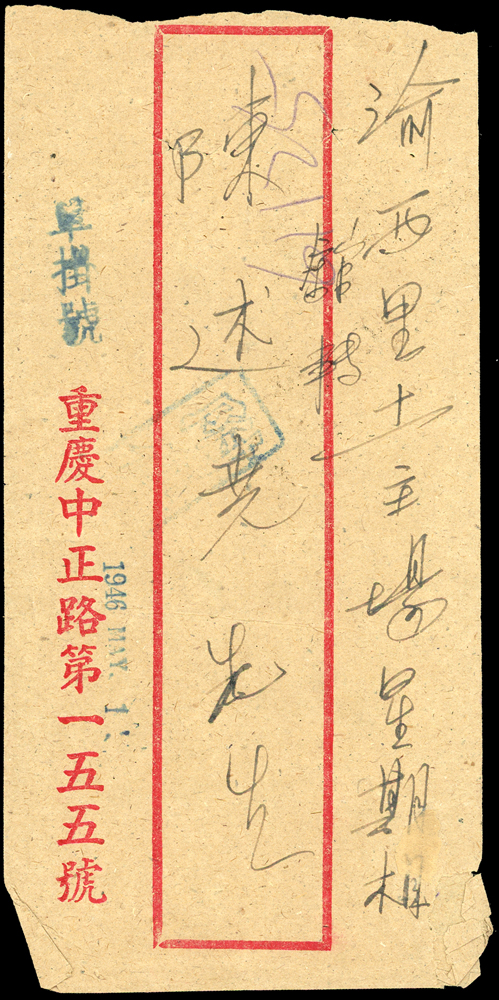 渝西里土主場星期相
館轉
陳述堯先生
單掛號
1946 MAY. 1
重慶中正路第一五五號